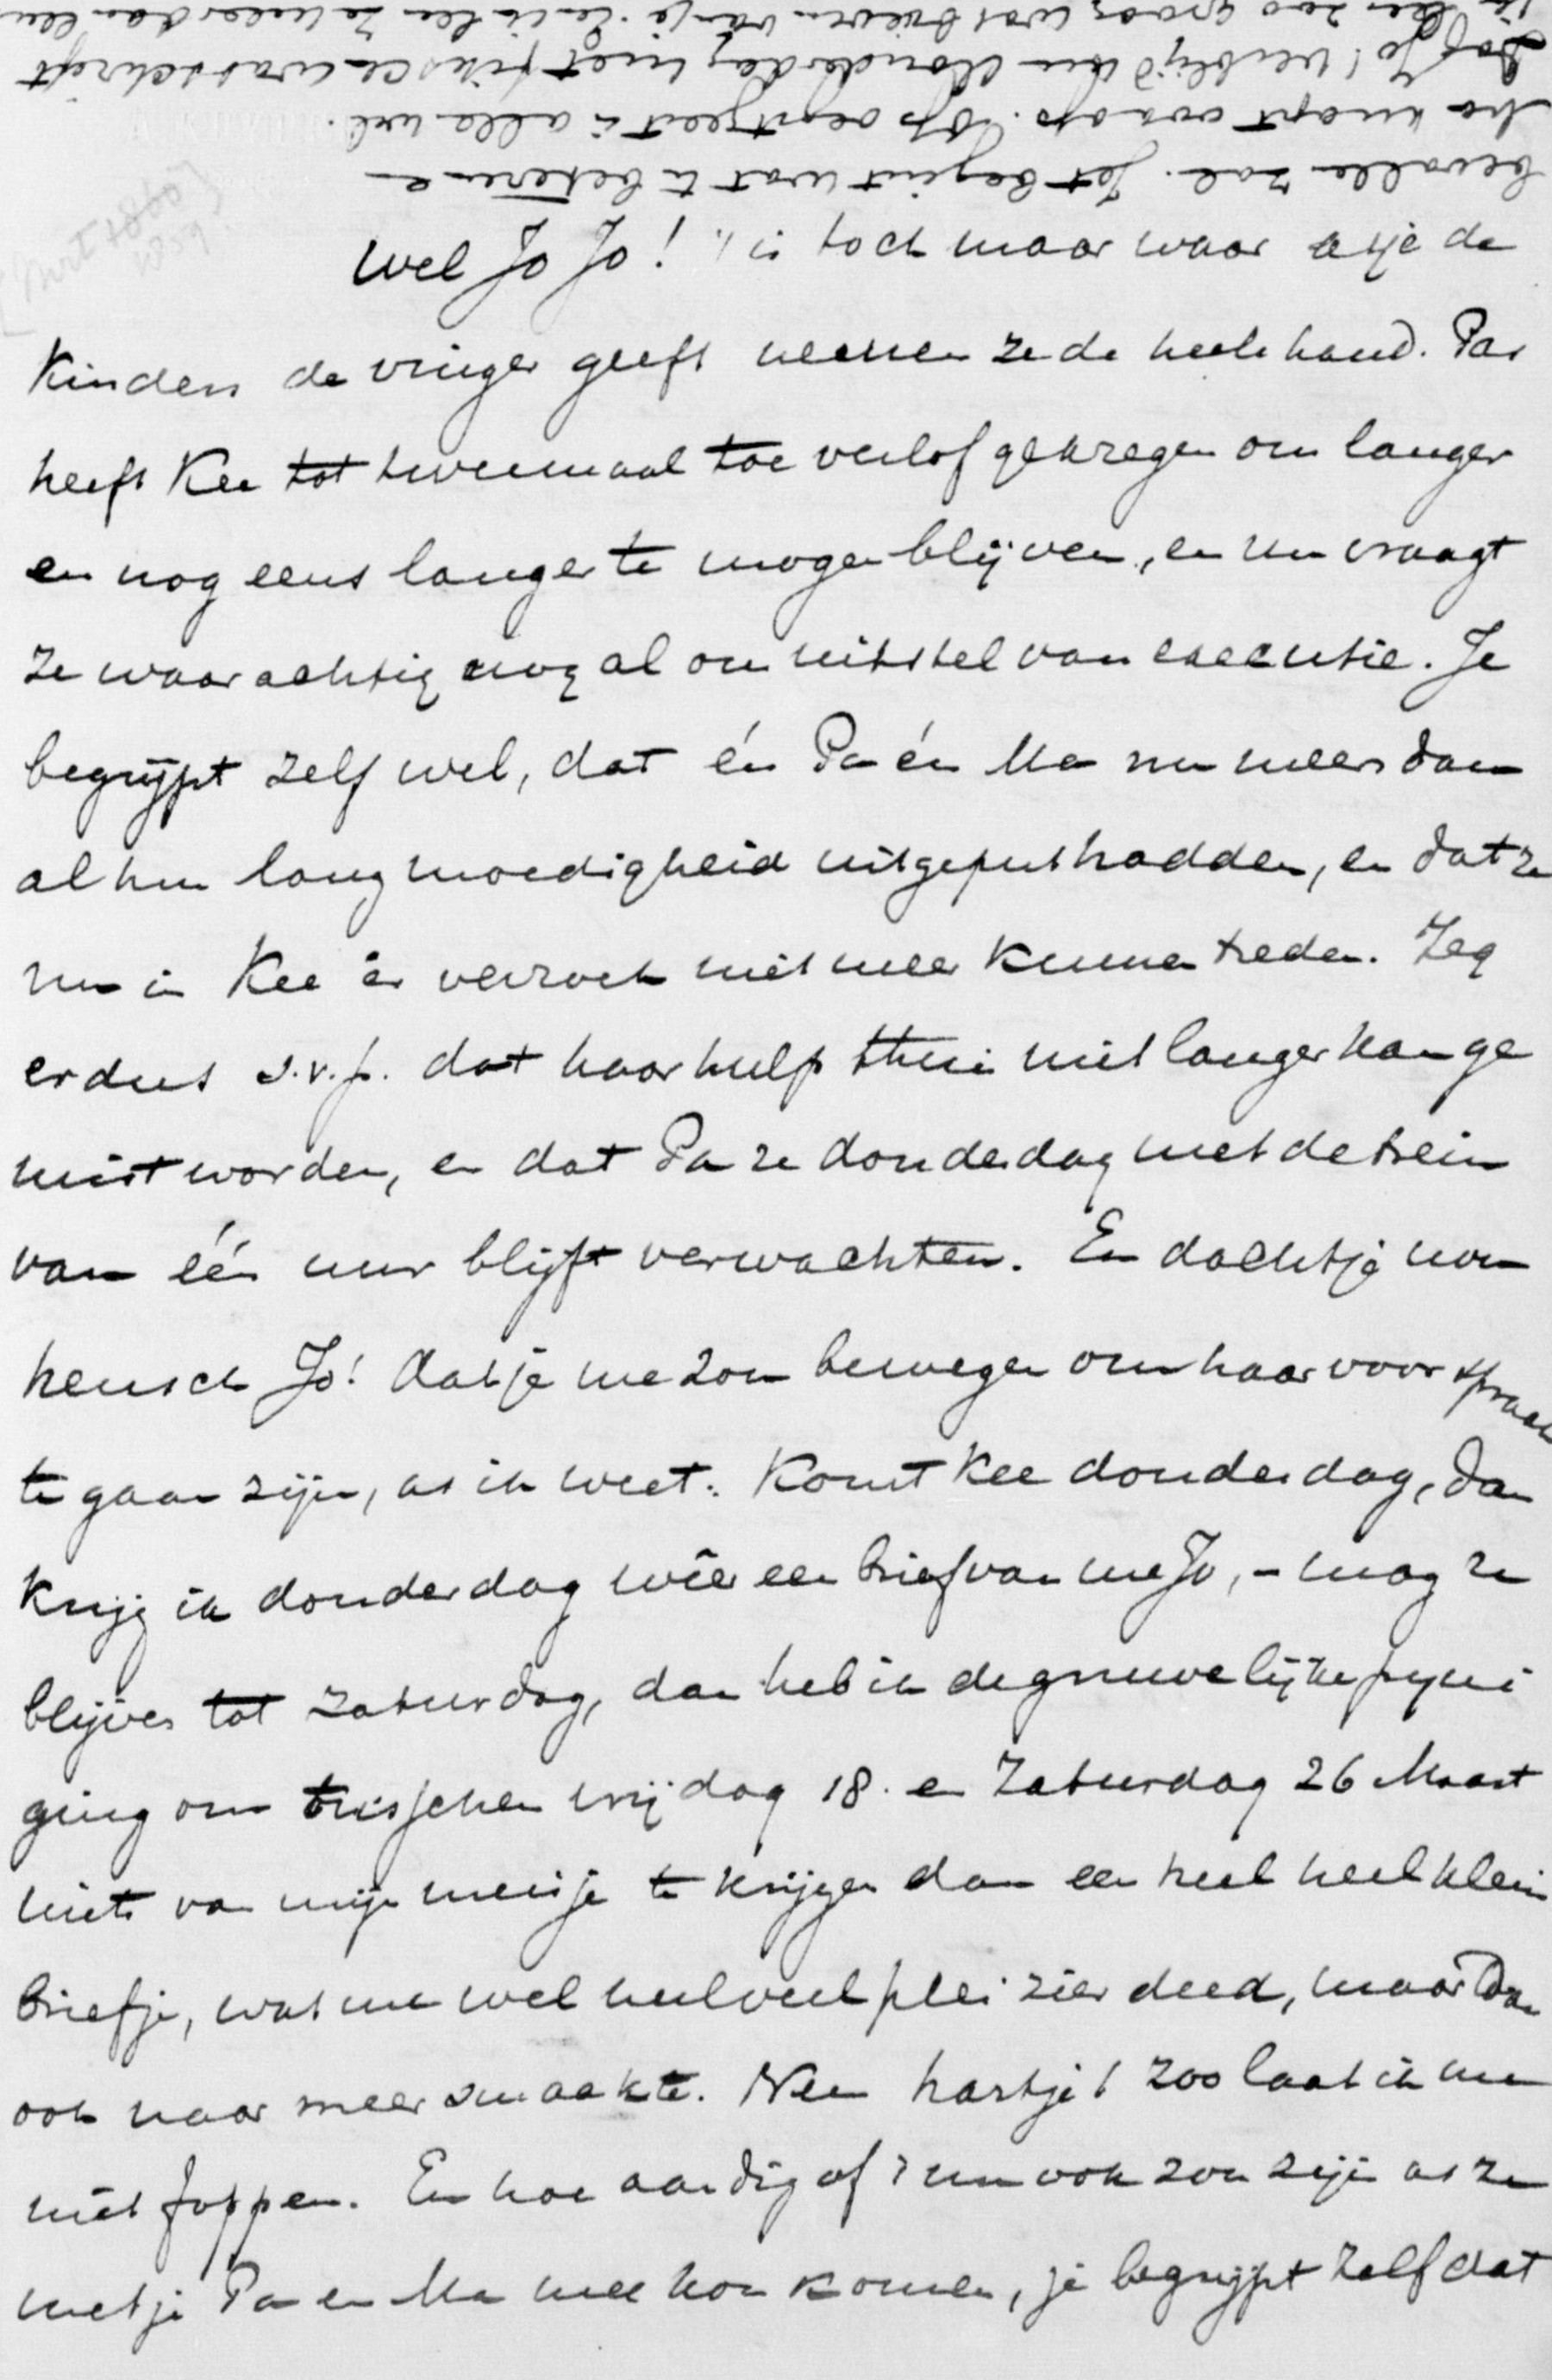 wel Jo Jo! 't is toch maar waar as je de
Kinders de vinger geeft nemen ze de heele hand. Pas
heeft Kee tot tweemaal toe verlof gekregen om langer
en nog eens langer te mogen blijven, en nu vraagt
ze waarachtig nog al om uitstel van executie. Je
begrijpt zelf wel, dat én Pa én Ma nu meer dan
al hun langmoedigheid uitgeput hadden, en dat ze
nu in Kee er verzoek niet meer kunnen treden. Zeg
er dus s.v.p. dat haar hulp thuis niet langer kan ge
mist worden, en dat Pa ze donderdag met de trein
van één uur blijft verwachten. En dacht je nou
heusch Jo! dat je me zou bewegen om haar voorspraak
te gaan zijn, as ik weet: Komt Kee donderdag, dan
Krijg ik donderdag wéer een brief van me Jo, – mag ze
blijven tot Zaturdag, dan heb ik de gruwelijke pijni
ging om tusschen vrijdag 18. en Zaturdag 26 Maart
niets van mijn meisje te krijgen dan een heel heel klein
briefje, wat me wel heel veel pleizier deed, maar dan
ook naar meer smaakte. Nee hartje! zoo laat ik me
niet foppen. En hoe aardig of 't nu ook zou zijn as ze
met je Pa en Ma mee kon komen, je begrijpt zelf dat
bevallen zal. Jet begint wat te beteren
knapt ook op. Op oegstgeest is alles wel.
Dag Jo! verblijd me Donderdag met